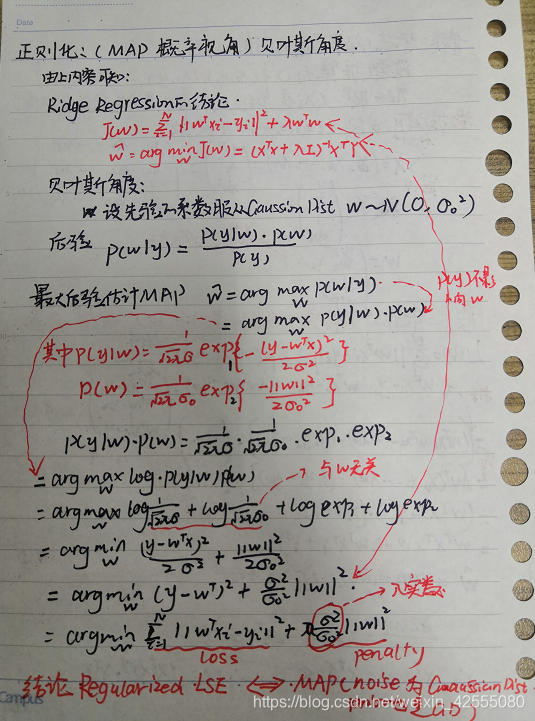 Date
正则化:(MAP 概率视角)贝叶斯角度.
由上内容可知:
Ridge Regression的结论.
J(w) = Σ_{i=1}^{N} ||wᵀxi - yi||² + λwᵀw
ŵ = arg min_w J(w) = (XᵀX + λI)⁻¹XᵀY
贝叶斯角度:
设先验的系数服从Gaussion Dist w~N(0, σ₀²)
后验 p(w|y) = p(y|w)·p(w) / p(y)
最大后验估计MAP ŵ = arg max_w p(w|y).
p(y)不影响 w
= arg max_w p(y|w)·p(w)
其中 p(y|w) = 1/(√2π σ) exp₁{-(y-wᵀx)²/2σ²}
p(w) = 1/(√2π σ₀) exp₂{-||w||²/2σ₀²}
p(y|w)·p(w) = 1/(√2π σ) · 1/(√2π σ₀) · exp₁ · exp₂
= arg max_w log·p(y|w)p(w)
与w无关
= arg max_w log 1/(√2π σ) + log 1/(√2π σ₀) + log exp₁ + log exp₂
= arg min_w (y-wᵀx)²/2σ² + ||w||²/2σ₀²
= arg min_w (y-wᵀ)² + σ²/σ₀² ||w||².
λ实数
= arg min_w Σ_{i=1}^{N} ||wᵀxi - yi||² + σ²/σ₀² ||w||²
Loss penalty
结论 Regularized LSE ⟺ MAP (noise 为 Gaussian Dist.
Campus
https://blog.csdn.net/weixin_42555080